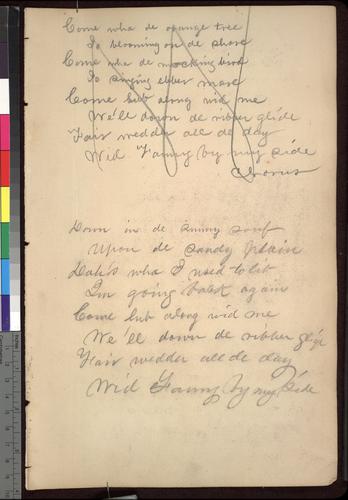 Come wha de orange tree
Is blooming on de shore
Come wha de mocking bird
Is singing ebber more
Come lub along wid me
We'll down de ribber glide
Fair wedder all de day
Wid Fanny by my side
Chorus
Down in de sunny souf
Upon de sandy plain
Dah's wha I used to lib
I'm going back again
Come lub along wid me
We'll down de ribber glide
Fair wedder all de day
Wid Fanny by my side